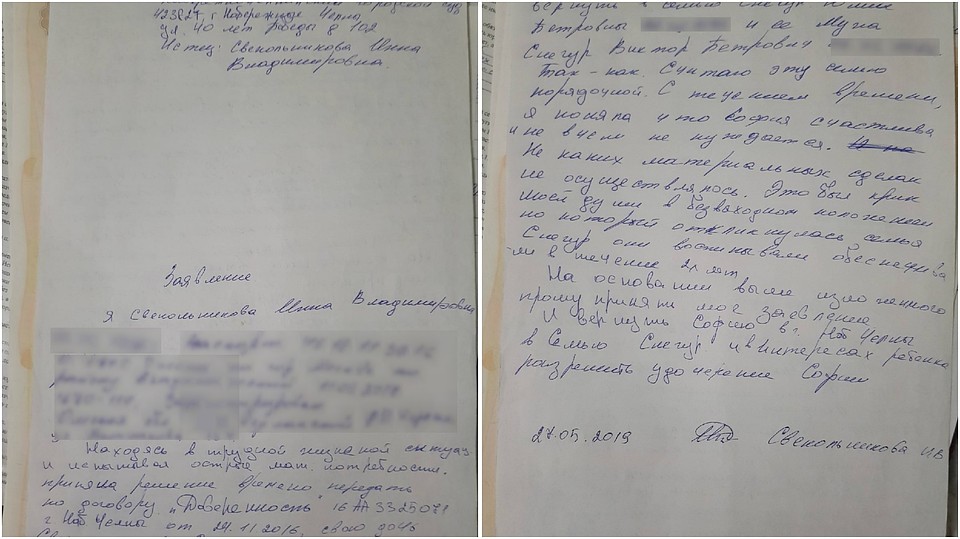 423827, г Набережные Челны
ул. 40 лет Победы д 102
Истец: Свекольникова Инна
Владимировна.
Заявление
я Свекольникова Инна Владимировна
Находясь в трудной
и испытывая острые мат. потребности.
приняла решение времено передать
по договору „Доверенность" 16 АА 3325071
г Наб Челны от 24.11.2016, свою дочь
вернуть в семью Снегур
Петровны и ее мужа
Снегур Виктор Петрович
Так-как. Считаю эту семью
порядочной. С течением времени,
я поняла что София счастлива
и не в чем не нуждается.
Не каких материальных сделок
не осуществлялось. Это был крик
моей души в безвыходном положении
но который откликнулась семья
Снегур они воспитывали обеспечива
-ли в течение 2х лет
На основании выше изложенного
прошу принять моё заявление
И вернуть Софию в г. Наб Челны
в Семью Снегур и в интересах ребенка
разрешить удочерение Софии
27.05.2019 Свекольникова ИВ